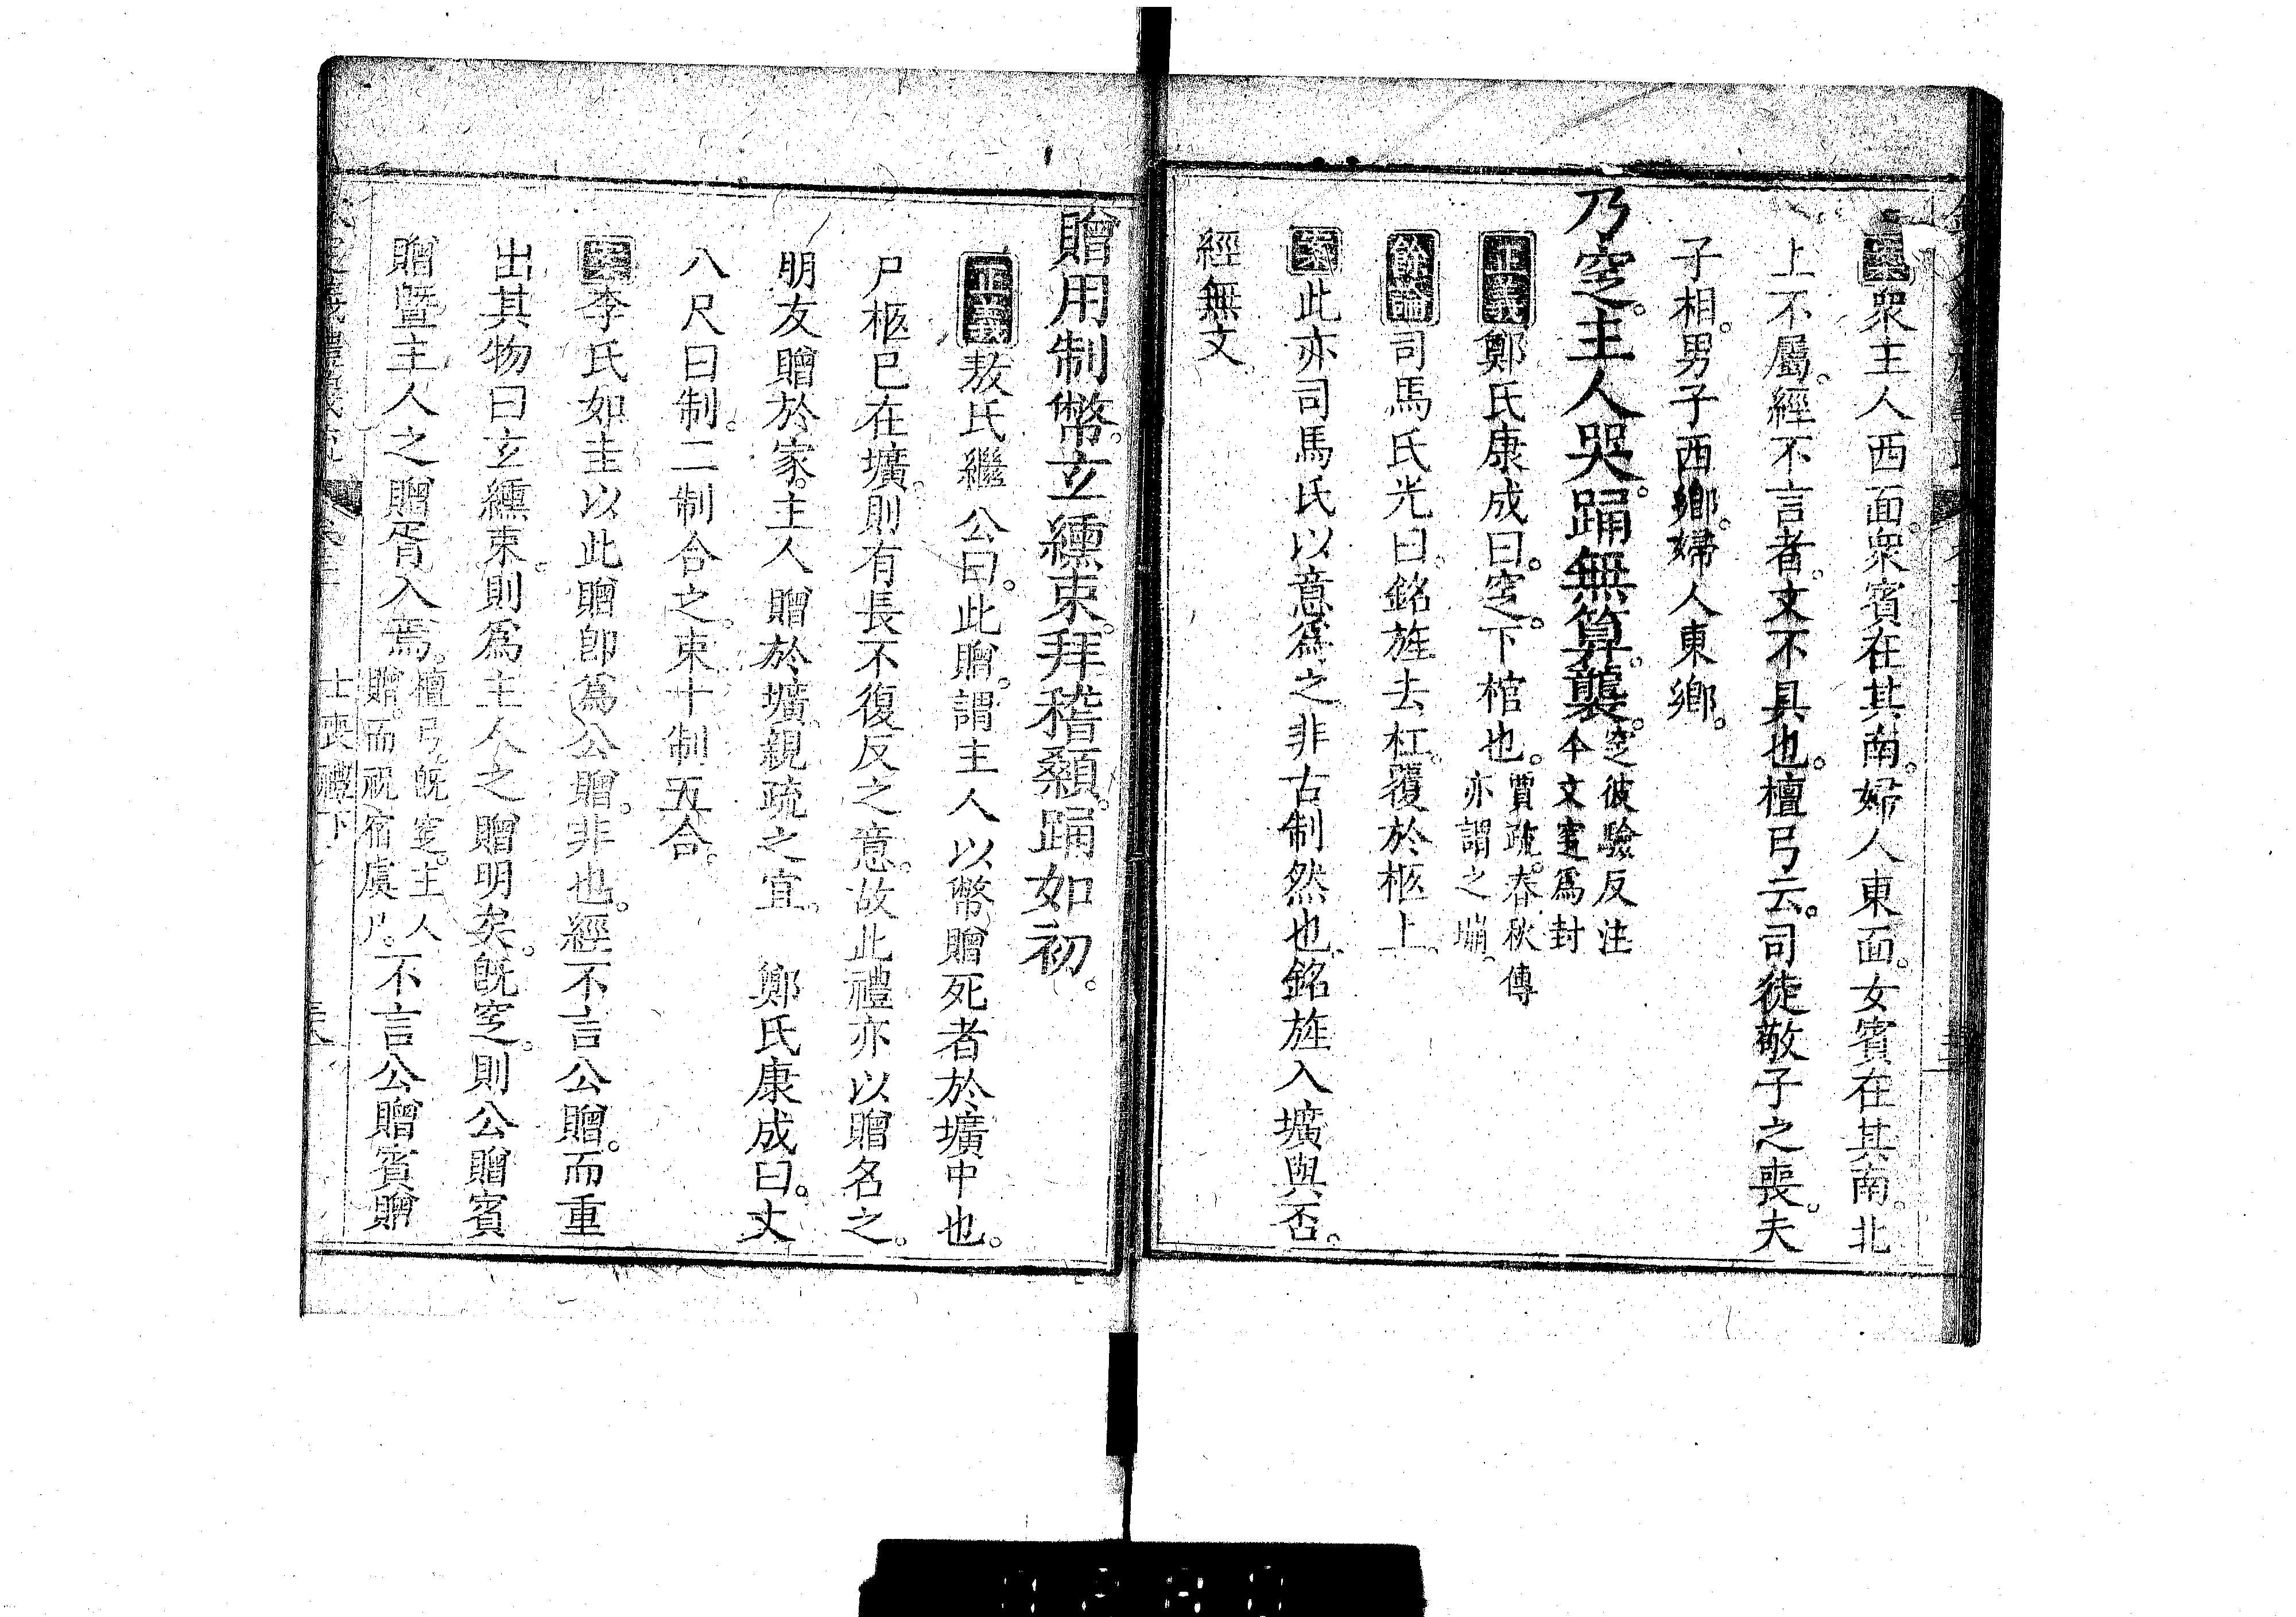 案衆主人西面。衆賓在其南。婦人東面。女賓在其南。北
上不屬。經不言者。文不具也。檀弓云。司徒敬子之喪。夫
子相。男子西鄉。婦人東鄉。
乃窆。主人哭。踊無算。襲。窆彼驗反注
今文窆爲封
正義鄭氏康成曰。窆。下棺也。賈疏。春秋傳
亦謂之塴。
餘論司馬氏光曰。銘旌去杠。覆於柩上。
案此亦司馬氏以意爲之。非古制然也。銘旌入壙與否。
經無文。
贈用制幣。玄纁束。拜稽顙。踊如初。
正義敖氏繼公曰。此贈。謂主人以幣贈死者於壙中也。
尸柩已在壙。則有長不復反之意。故此禮亦以贈名之。
朋友贈於家。主人贈於壙。親疏之宜。 鄭氏康成曰。丈
八尺曰制。二制合之。束十制五合。
案李氏如圭以此贈卽爲公贈。非也。經不言公贈。而重
出其物曰玄纁束。則爲主人之贈明矣。旣窆。則公贈賓
贈曁主人之贈胥入焉。檀弓旣窆。主人
贈。而祝宿虞尸。不言公贈賓贈
士喪禮下